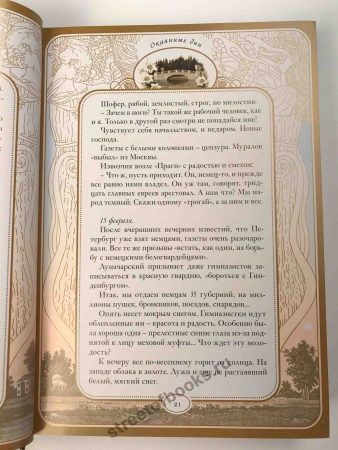 Окаянные дни
Шофер, рябой, землистый, строг, но милостив:
– Зачем в ноги? Ты такой же рабочий человек, как
и я. Только в другой раз смотри не попадайся мне!
Чувствует себя начальством, и недаром. Новые
господа.
Газеты с белыми колонками – цензура. Муралов
«выбыл» из Москвы.
Извозчик возле «Праги» с радостью и смехом:
– Что ж, пусть приходит. Он, немец-то, и прежде
все равно нами владел. Он уж там, говорят, трид-
цать главных евреев арестовал. А нам что? Мы на-
род темный. Скажи одному «трогай», а за ним и все.
15 февраля.
После вчерашних вечерних известий, что Пе-
тербург уже взят немцами, газеты очень разочарова-
ли. Все те же призывы «встать, как один, на борь-
бу с немецкими белогвардейцами».
Луначарский призывает даже гимназистов за-
писываться в красную гвардию, «бороться с Гин-
денбургом».
Итак, мы отдаем немцам 35 губерний, на мил-
лионы пушек, броневиков, поездов, снарядов...
Опять несет мокрым снегом. Гимназистки идут
облепленные им – красота и радость. Особенно бы-
ла хороша одна – прелестные синие глаза из-за под-
нятой к лицу меховой муфты... Что ждет эту моло-
дость?
К вечеру все по-весеннему горит от солнца. На
западе облака в золоте. Лужи и еще не растаявший
белый, мягкий снег.
21